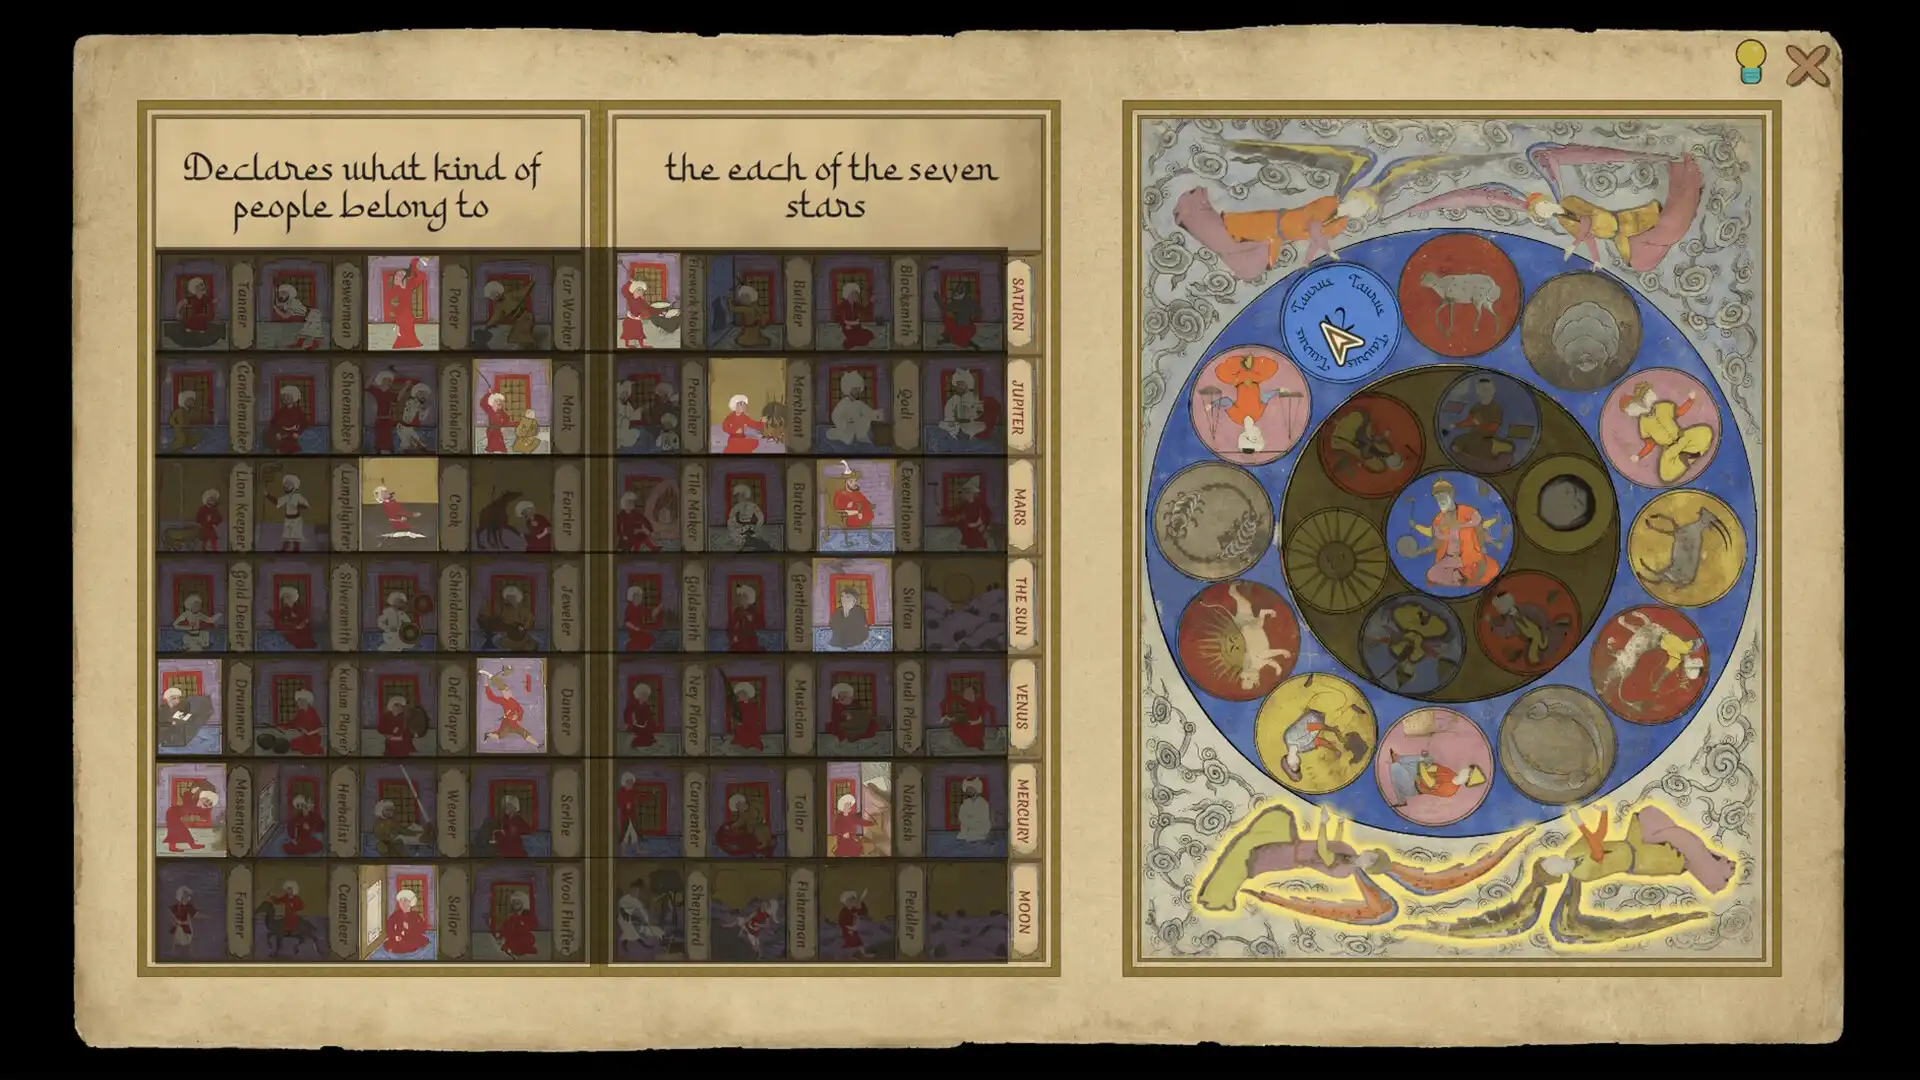 Declares what kind of
people belong to
the each of the seven
stars
Tanner
Sewerman
Porter
Tar Worker
Firework Maker
Builder
Blacksmith
SATURN
Candlemaker
Shoemaker
Constabulary
Monk
Preacher
Merchant
Qadi
JUPITER
Lion Keeper
Lamplighter
Cook
Farrier
Tile Maker
Butcher
Executioner
MARS
Gold Dealer
Silversmith
Shieldmaker
Jeweler
Goldsmith
Gentleman
Sultan
THE SUN
Drummer
Kudum Player
Def Player
Dancer
Ney Player
Musician
Oud Player
VENUS
Messenger
Herbalist
Weaver
Scribe
Carpenter
Tailor
Nakkash
MERCURY
Farmer
Cameleer
Sailor
Wool Fluffer
Shepherd
Fisherman
Peddler
MOON
Taurus Taurus Taurus Taurus